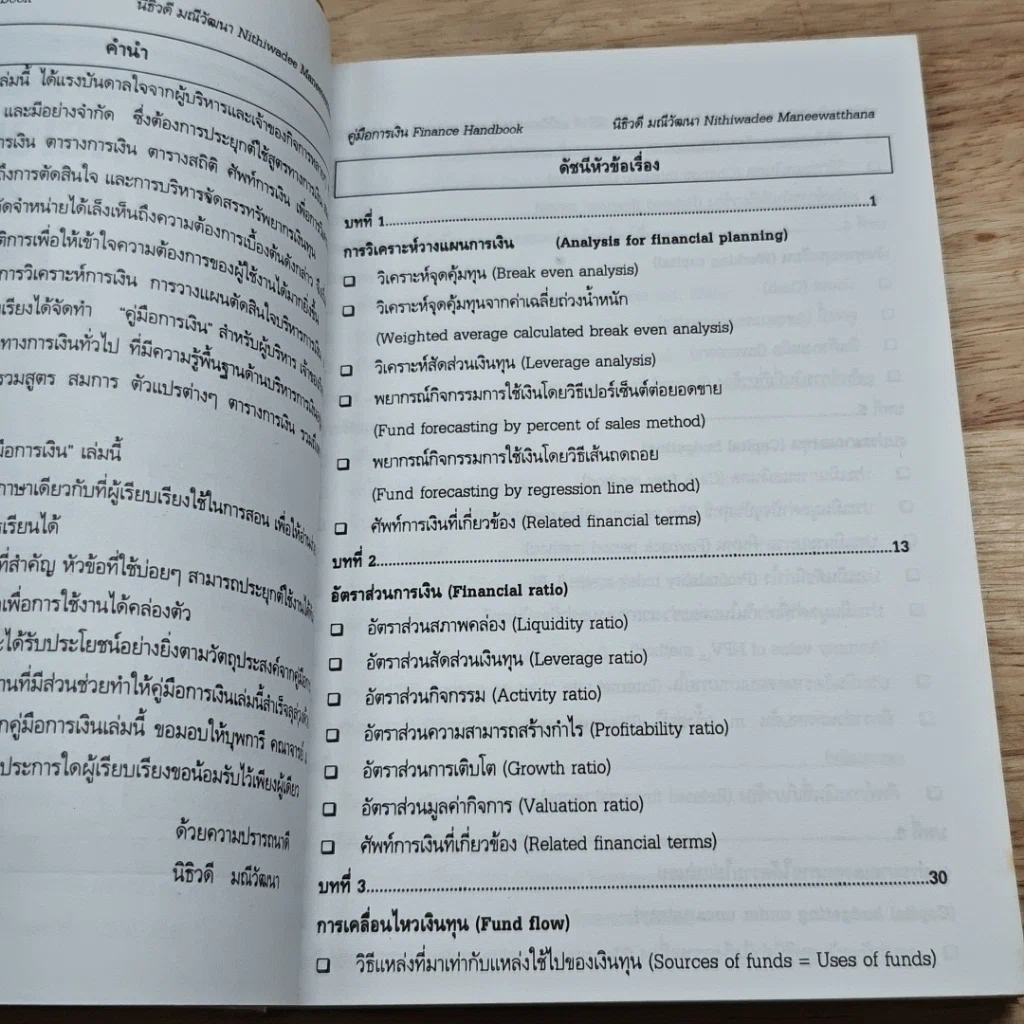 นิธิวดี มณีวัฒนา Nithiwadee
คำนำ
เล่มนี้ ได้แรงบันดาลใจจากผู้บริหารและเจ้าของกิจการ
และมีอย่างจำกัด ซึ่งต้องการประยุกต์ใช้สูตรทางการเงิน
ตารางการเงิน ตารางสถิติ ศัพท์การเงิน
ถึงการตัดสินใจ และการบริหารจัดสรรทรัพยากรเงินทุน
จัดจำหน่ายได้เล็งเห็นถึงความต้องการเบื้องต้นดังกล่าว
เพื่อให้เข้าใจความต้องการของผู้ใช้งานได้มากยิ่งขึ้น
การวิเคราะห์การเงิน การวางแผนตัดสินใจบริหารการเงิน
เรียงได้จัดทำ "คู่มือการเงิน" สำหรับผู้บริหาร
ทางการเงินทั่วไป ที่มีความรู้พื้นฐานด้านบริหารการเงิน
รวมสูตร สมการ ตัวแปรต่างๆ ตารางการเงิน
มือการเงิน" เล่มนี้
ภาษาเดียวกับที่ผู้เรียบเรียงใช้ในการสอน
เรียนได้
ที่สำคัญ หัวข้อที่ใช้บ่อยๆ สามารถประยุกต์ใช้งานได้
เพื่อการใช้งานได้คล่องตัว
ได้รับประโยชน์อย่างยิ่งตามวัตถุประสงค์จากคู่มือ
ที่มีส่วนช่วยทำให้คู่มือการเงินเล่มนี้สำเร็จลุล่วง
คู่มือการเงินเล่มนี้ ขอมอบให้บุพการี คณาจารย์
ประการใดผู้เรียบเรียงขอน้อมรับไว้เพียงผู้เดียว
ด้วยความปรารถนาดี
นิธิวดี มณีวัฒนา
คู่มือการเงิน Finance Handbook นิธิวดี มณีวัฒนา Nithiwadee Maneewatthana
ดัชนีหัวข้อเรื่อง
บทที่ 1...................................................1
การวิเคราะห์วางแผนการเงิน (Analysis for financial planning)
❑ วิเคราะห์จุดคุ้มทุน (Break even analysis)
❑ วิเคราะห์จุดคุ้มทุนจากค่าเฉลี่ยถ่วงน้ำหนัก
(Weighted average calculated break even analysis)
❑ วิเคราะห์สัดส่วนเงินทุน (Leverage analysis)
❑ พยากรณ์กิจกรรมการใช้เงินโดยวิธีเปอร์เซ็นต์ต่อยอดขาย
(Fund forecasting by percent of sales method)
❑ พยากรณ์กิจกรรมการใช้เงินโดยวิธีเส้นถดถอย
(Fund forecasting by regression line method)
❑ ศัพท์การเงินที่เกี่ยวข้อง (Related financial terms)
บทที่ 2...................................................13
อัตราส่วนการเงิน (Financial ratio)
❑ อัตราส่วนสภาพคล่อง (Liquidity ratio)
❑ อัตราส่วนสัดส่วนเงินทุน (Leverage ratio)
❑ อัตราส่วนกิจกรรม (Activity ratio)
❑ อัตราส่วนความสามารถสร้างกำไร (Profitability ratio)
❑ อัตราส่วนการเติบโต (Growth ratio)
❑ อัตราส่วนมูลค่ากิจการ (Valuation ratio)
❑ ศัพท์การเงินที่เกี่ยวข้อง (Related financial terms)
บทที่ 3...................................................30
การเคลื่อนไหวเงินทุน (Fund flow)
❑ วิธีแหล่งที่มาเท่ากับแหล่งใช้ไปของเงินทุน (Sources of funds = Uses of funds)